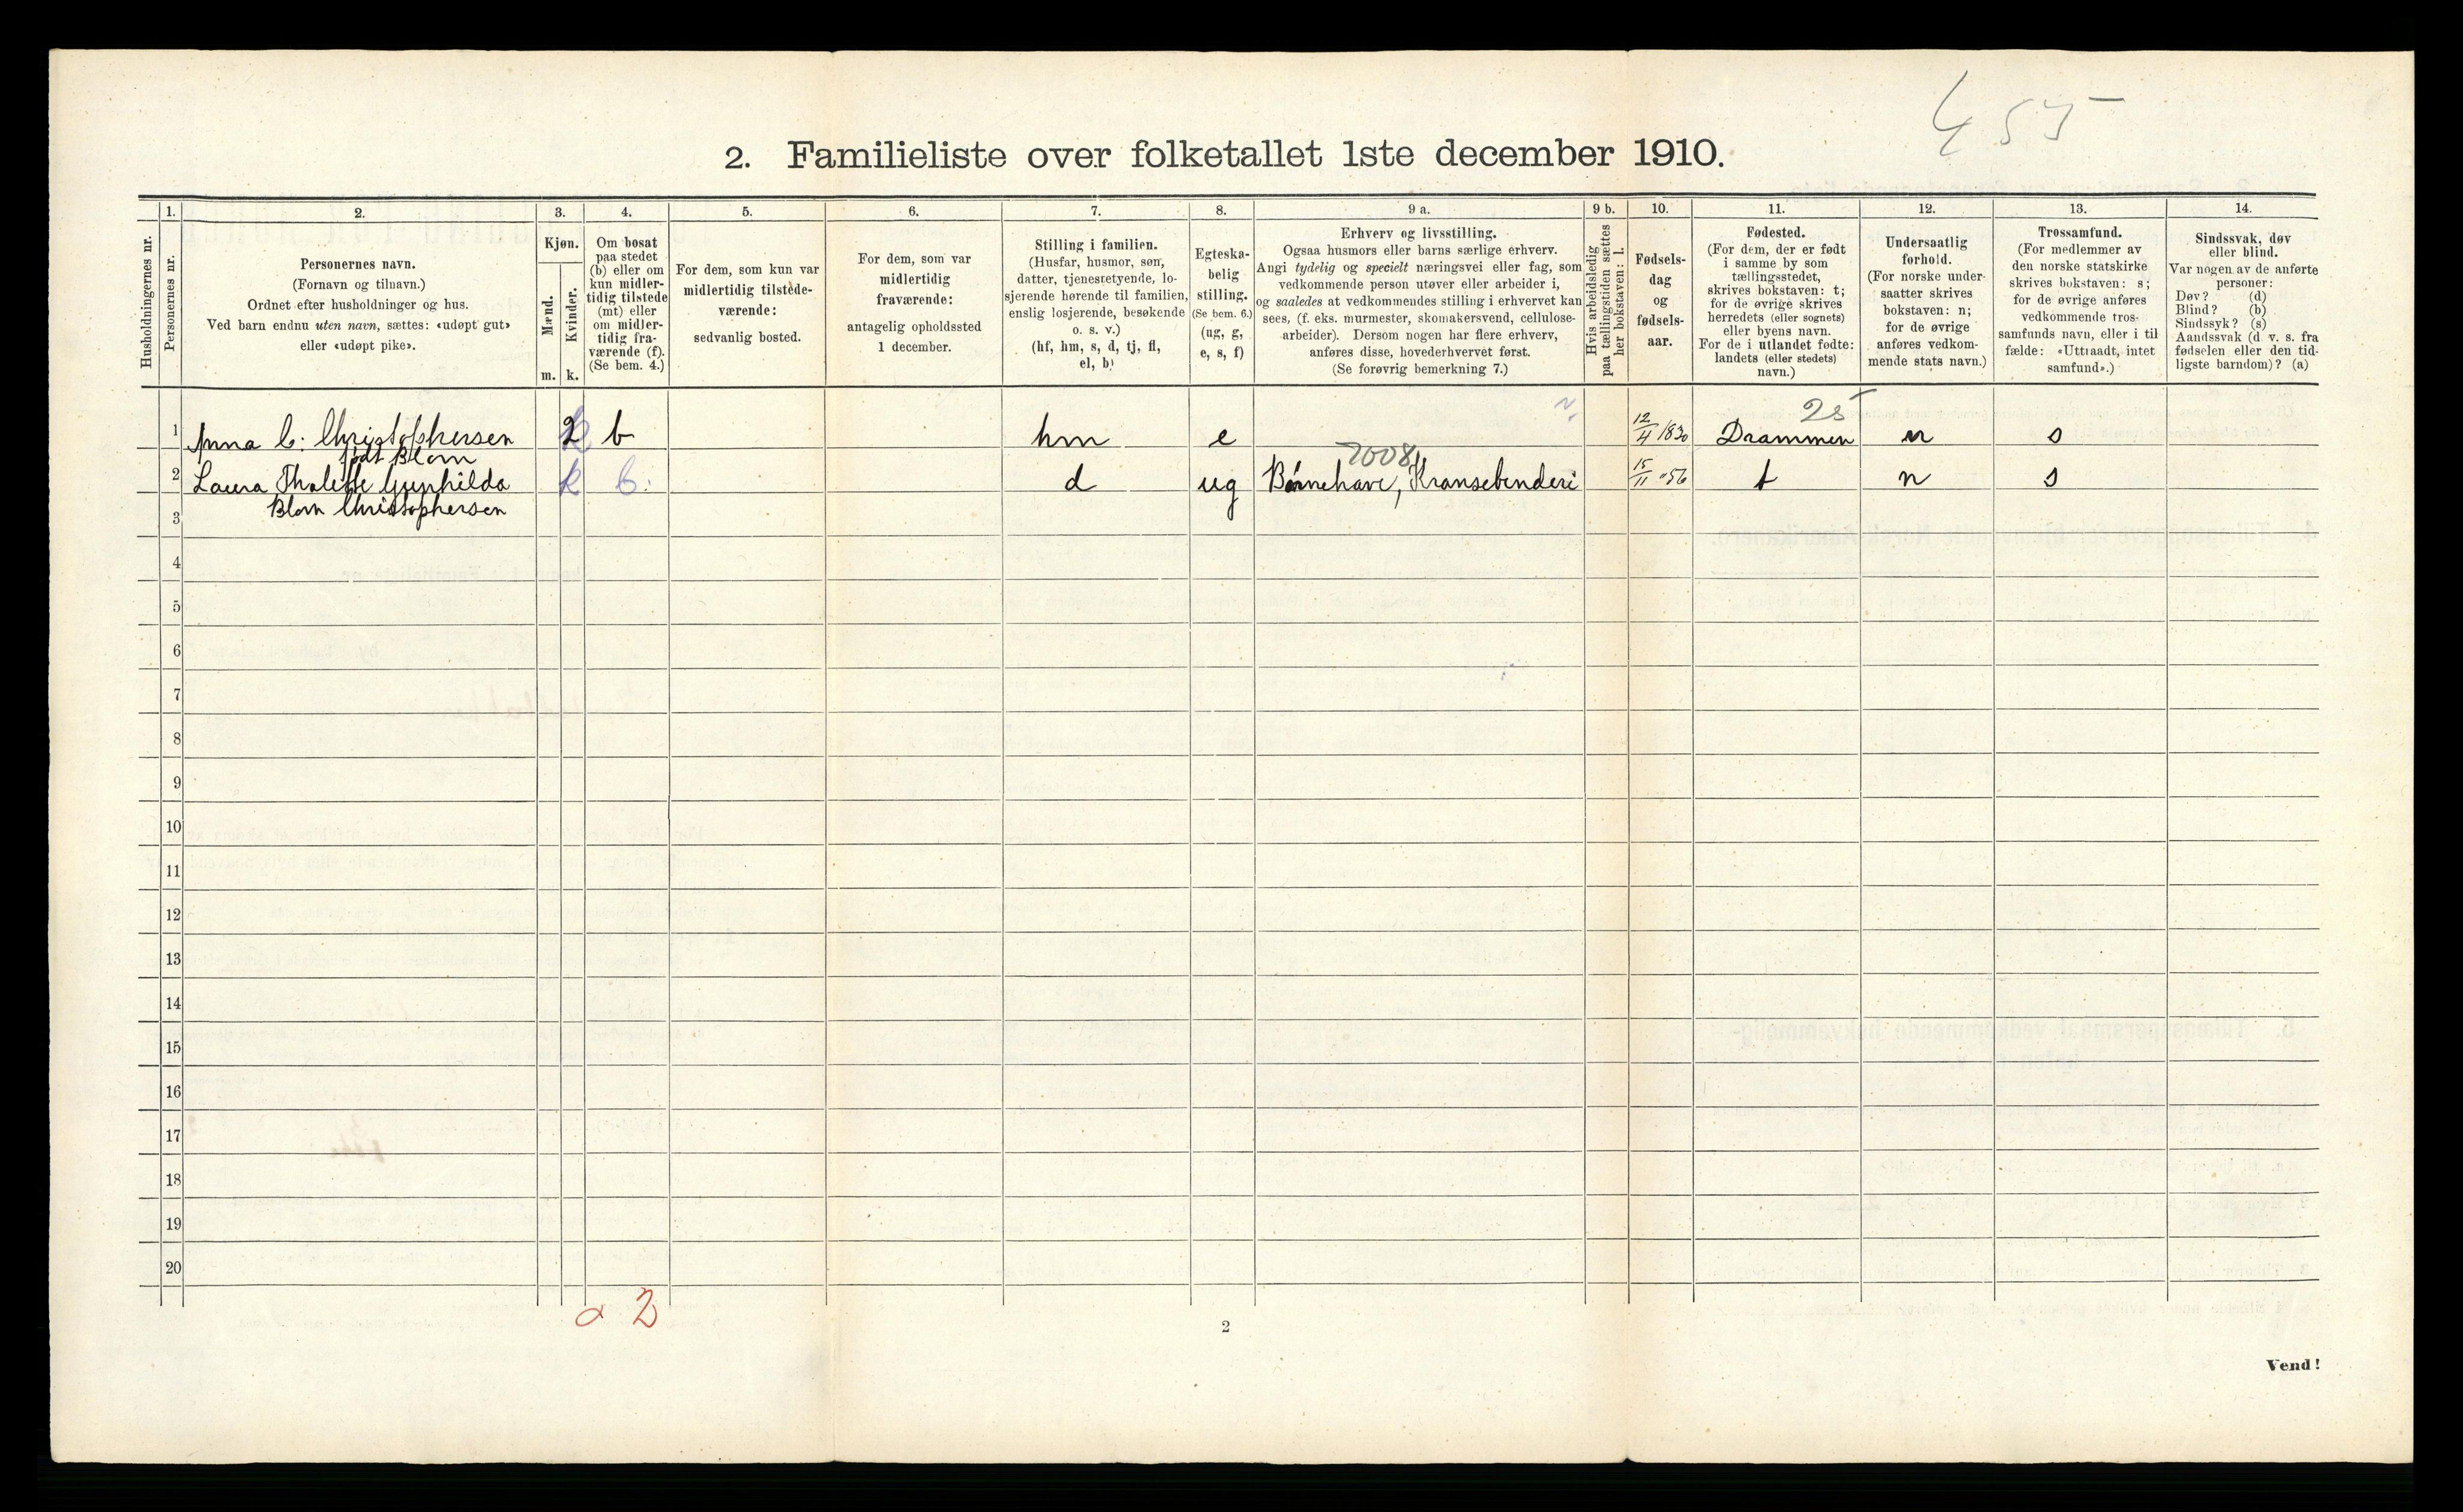 455
2. Familieliste over folketallet 1ste december 1910.
Husholdningernes nr.
1.
Personernes nr.
2.
Personernes navn.
(Fornavn og tilnavn.)
Ordnet efter husholdninger og hus.
Ved barn endnu uten navn, sættes: «udøpt gut»
eller «udøpt pike».
3.
Kjøn.
Mænd.
Kvinder.
m. k.
4.
Om bosat
paa stedet
(b) eller om
kun midler-
tidig tilstede
(mt) eller
om midler-
tidig fra-
værende (f).
(Se bem. 4.)
5.
For dem, som kun var
midlertidig tilstede-
værende:
sedvanlig bosted.
6.
For dem, som var
midlertidig
fraværende:
antagelig opholdssted
1 december.
7.
Stilling i familien.
(Husfar, husmor, søn,
datter, tjenestetyende, lo-
sjerende hørende til familien,
enslig losjerende, besøkende
o. s. v.)
(hf, hm, s, d, tj, fl,
el, b)
8.
Egteska-
belig
stilling.
(Se bem. 6.)
(ug, g,
e, s, f)
9 a.
Erhverv og livsstilling.
Ogsaa husmors eller barns særlige erhverv.
Angi tydelig og specielt næringsvei eller fag, som
vedkommende person utøver eller arbeider i,
og saaledes at vedkommendes stilling i erhvervet kan
sees, (f. eks. murmester, skomakersvend, cellulose-
arbeider). Dersom nogen har flere erhverv,
anføres disse, hovederhvervet først.
(Se forøvrig bemerkning 7.)
9 b.
Hvis arbeidsledig
paa tællingstiden sættes
her bokstaven: l.
10.
Fødsels-
dag
og
fødsels-
aar.
11.
Fødested.
(For dem, der er født
i samme by som
tællingsstedet,
skrives bokstaven: t;
for de øvrige skrives
herredets (eller sognets)
eller byens navn.
For de i utlandet fødte:
landets (eller stedets)
navn.)
12.
Undersaatlig
forhold.
(For norske under-
saatter skrives
bokstaven: n;
for de øvrige
anføres vedkom-
mende stats navn.)
13.
Trossamfund.
(For medlemmer av
den norske statskirke
skrives bokstaven: s;
for de øvrige anføres
vedkommende tros-
samfunds navn, eller i til
fælde: «Uttraadt, intet
samfund».)
14.
Sindssvak, døv
eller blind.
Var nogen av de anførte
personer:
Døv? (d)
Blind? (b)
Sindssyk? (s)
Aandssvak (d. v. s. fra
fødselen eller den tid-
ligste barndom)? (a)
25
1 Anna C. Christophersen 2 b hm e 12/4 1830 Drammen n s
født Blom
7008
2 Laura Thalette Gunhilda k b. d ug Børnehave, Kransebinderi 15/11 "56 t n s
Blom Christophersen
3
4
5
6
7
8
9
10
11
12
13
14
15
16
17
18
19
20
2
2
Vend!